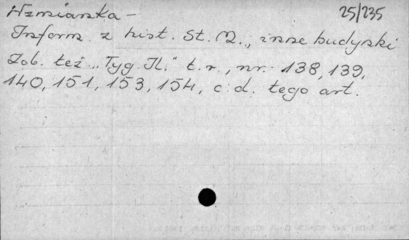 Wzmianka -
25/235
Inform. z hist. St. M., inne budynki
Zob. też "Tyg. Il." t. r., nr. 138, 139,
140, 151, 153, 154, c. d. tego art.